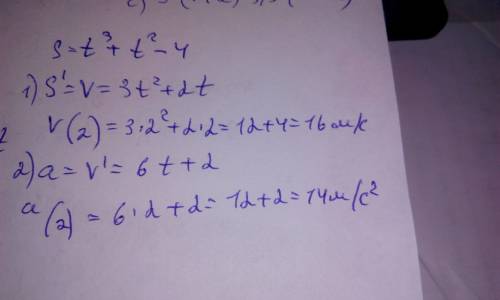 S=t³+t²-4
1) S'=V=3t²+2t
V(2)=3·2²+2·2=12+4=16м/с
2) a=V'=6t+2
a(2)=6·2+2=12+2=14м/с²